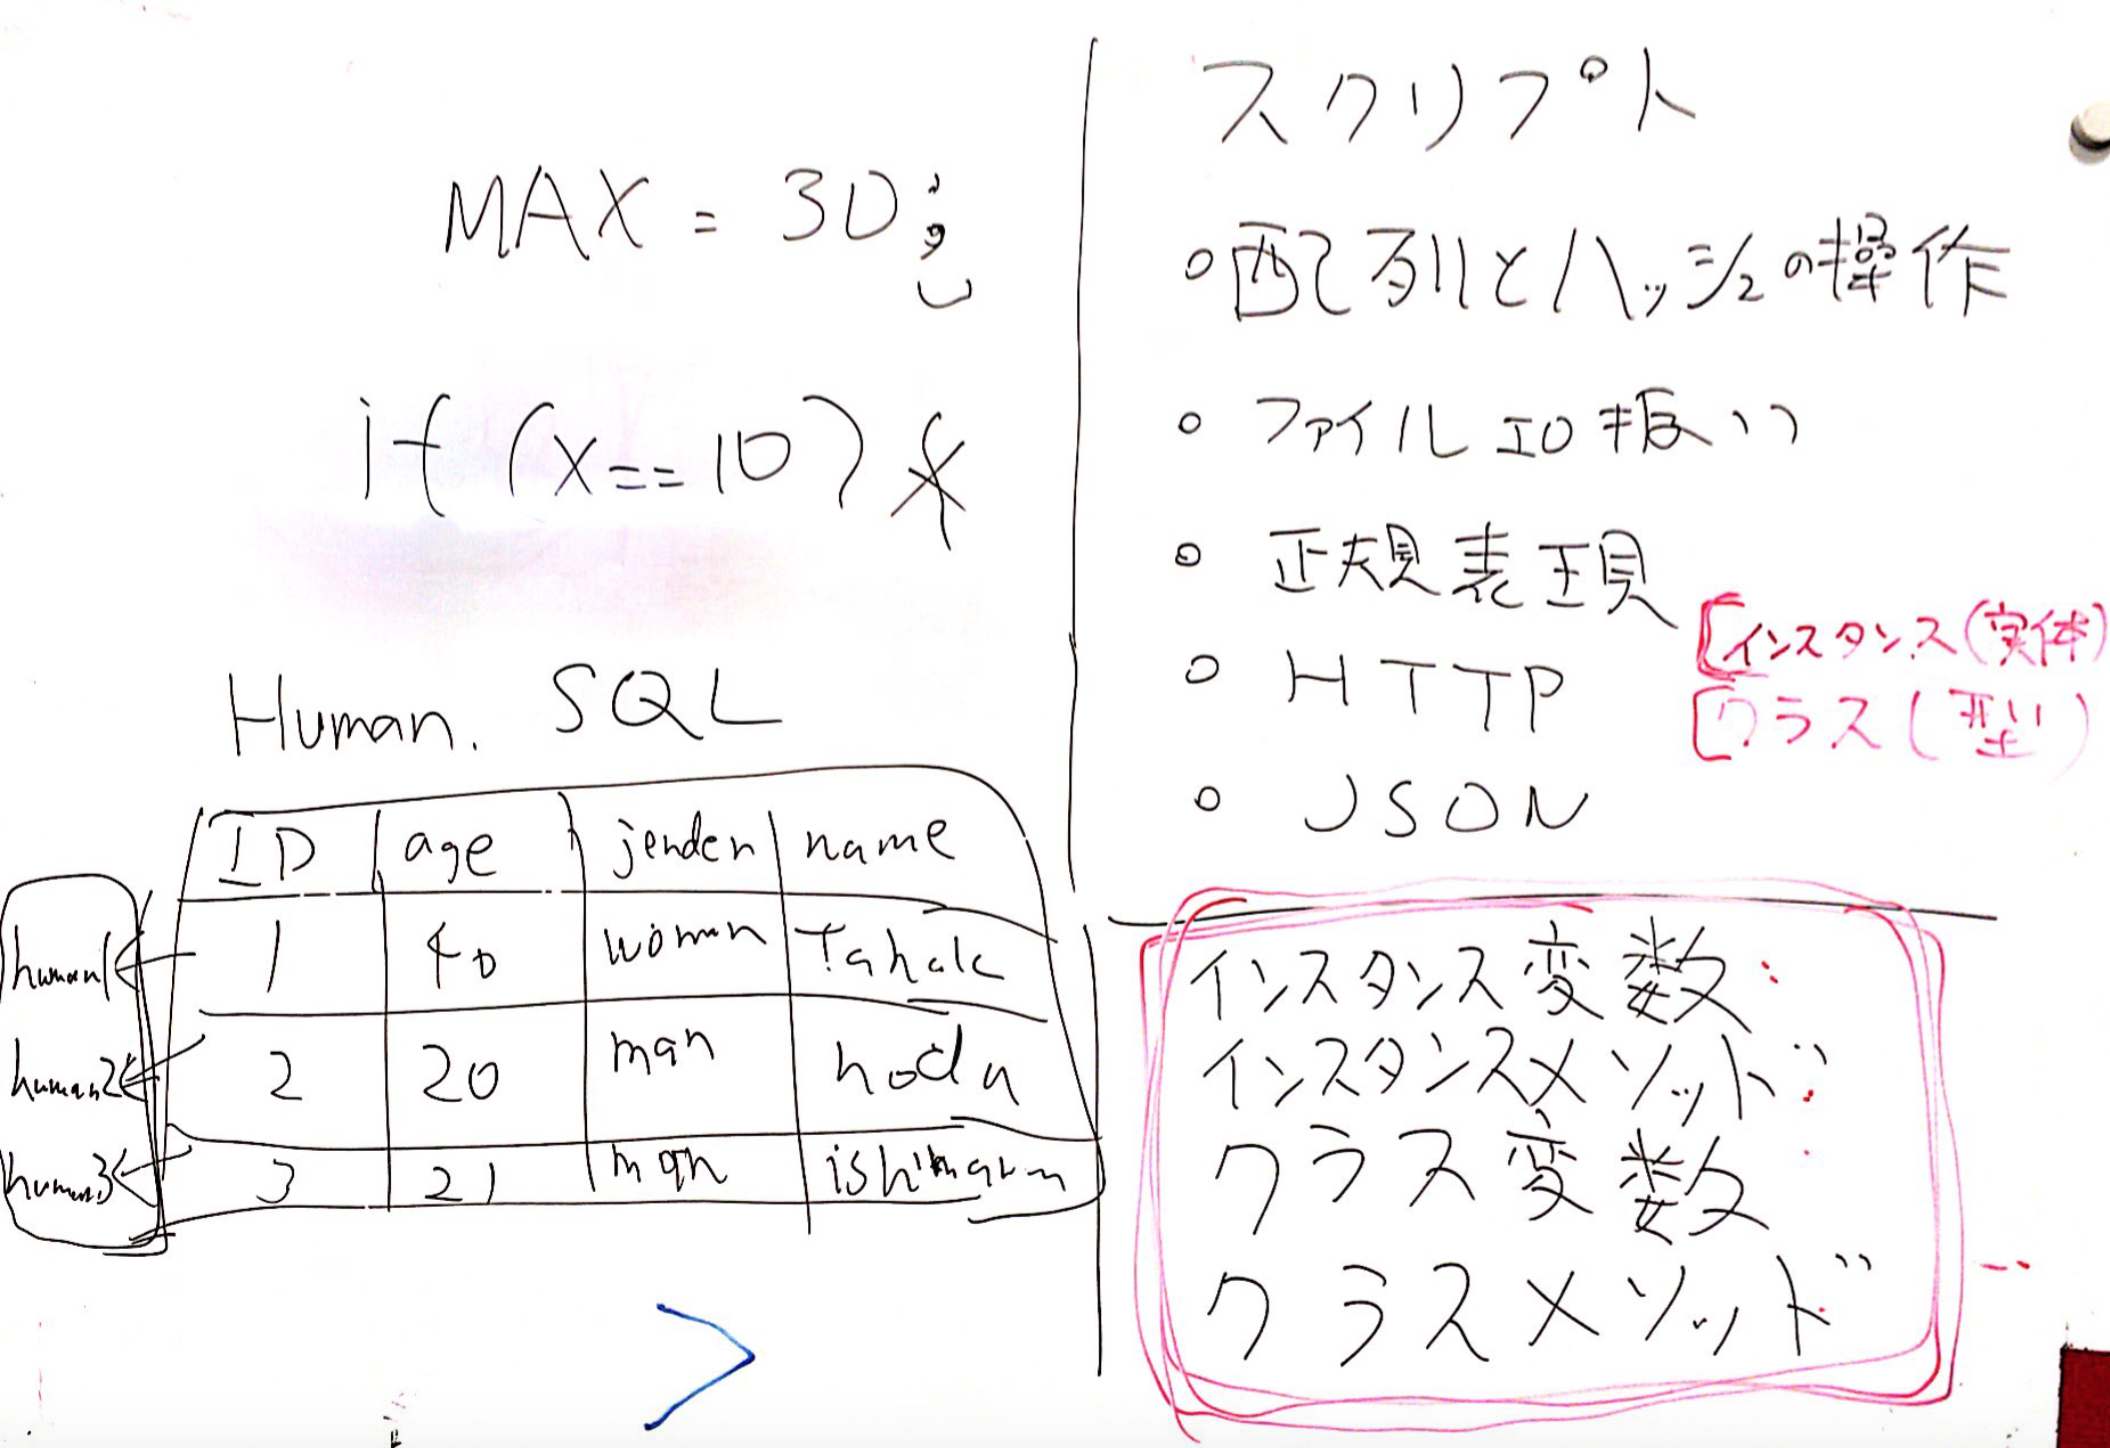 MAX = 30;
if (x==10) {
Human. SQL
ID age jender name
human1 1 40 woman
human2 2 20 man
human3 3 21 man ishimaru
スクリプト
○配列とハッシュの操作
○ ファイルIO扱い
○ 正規表現
○ HTTP
○ JSON
[インスタンス(実体)
[クラス(型)
インスタンス変数:
インスタンスメソッド:
クラス変数
クラスメソッド